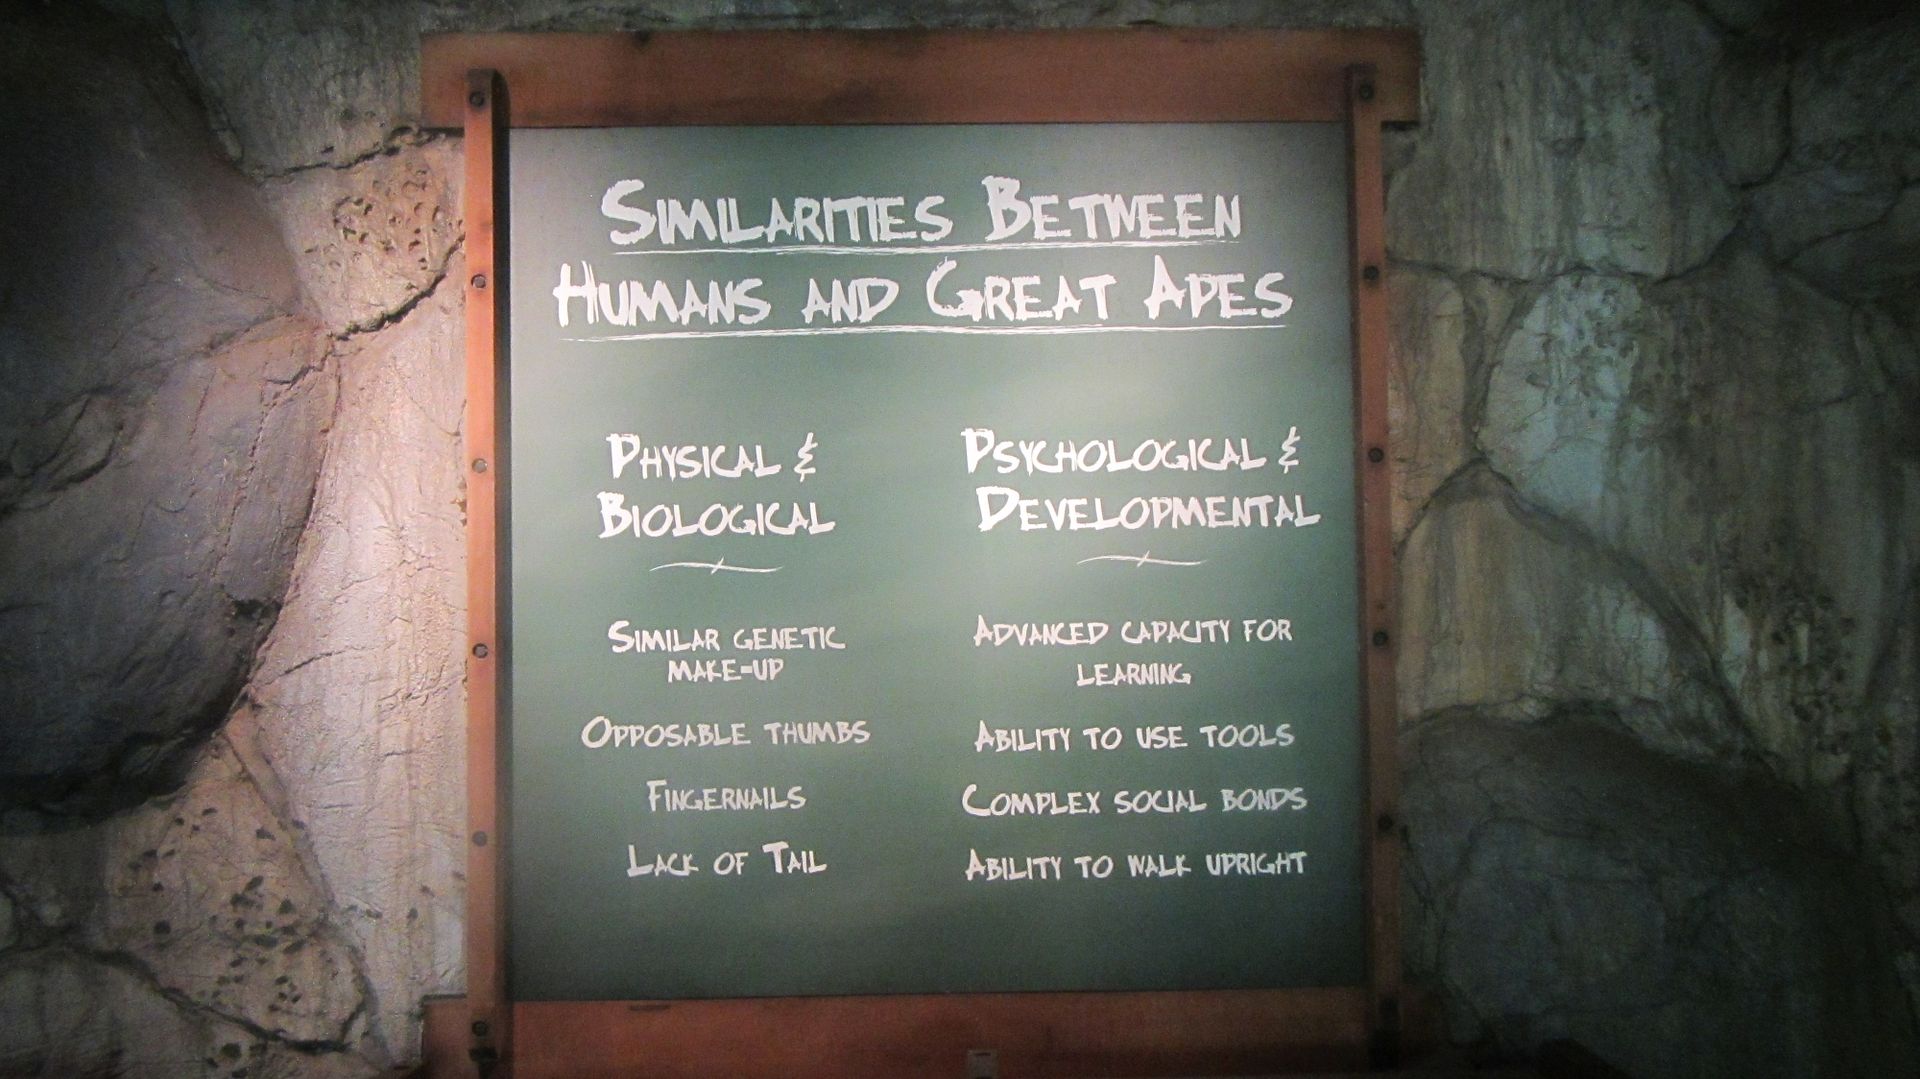 Similarities Between
Humans and Great Apes
Physical &
Biological
Similar genetic
make-up
Opposable thumbs
Fingernails
Lack of Tail
Psychological &
Developmental
Advanced capacity for
learning
Ability to use tools
Complex social bonds
Ability to walk upright